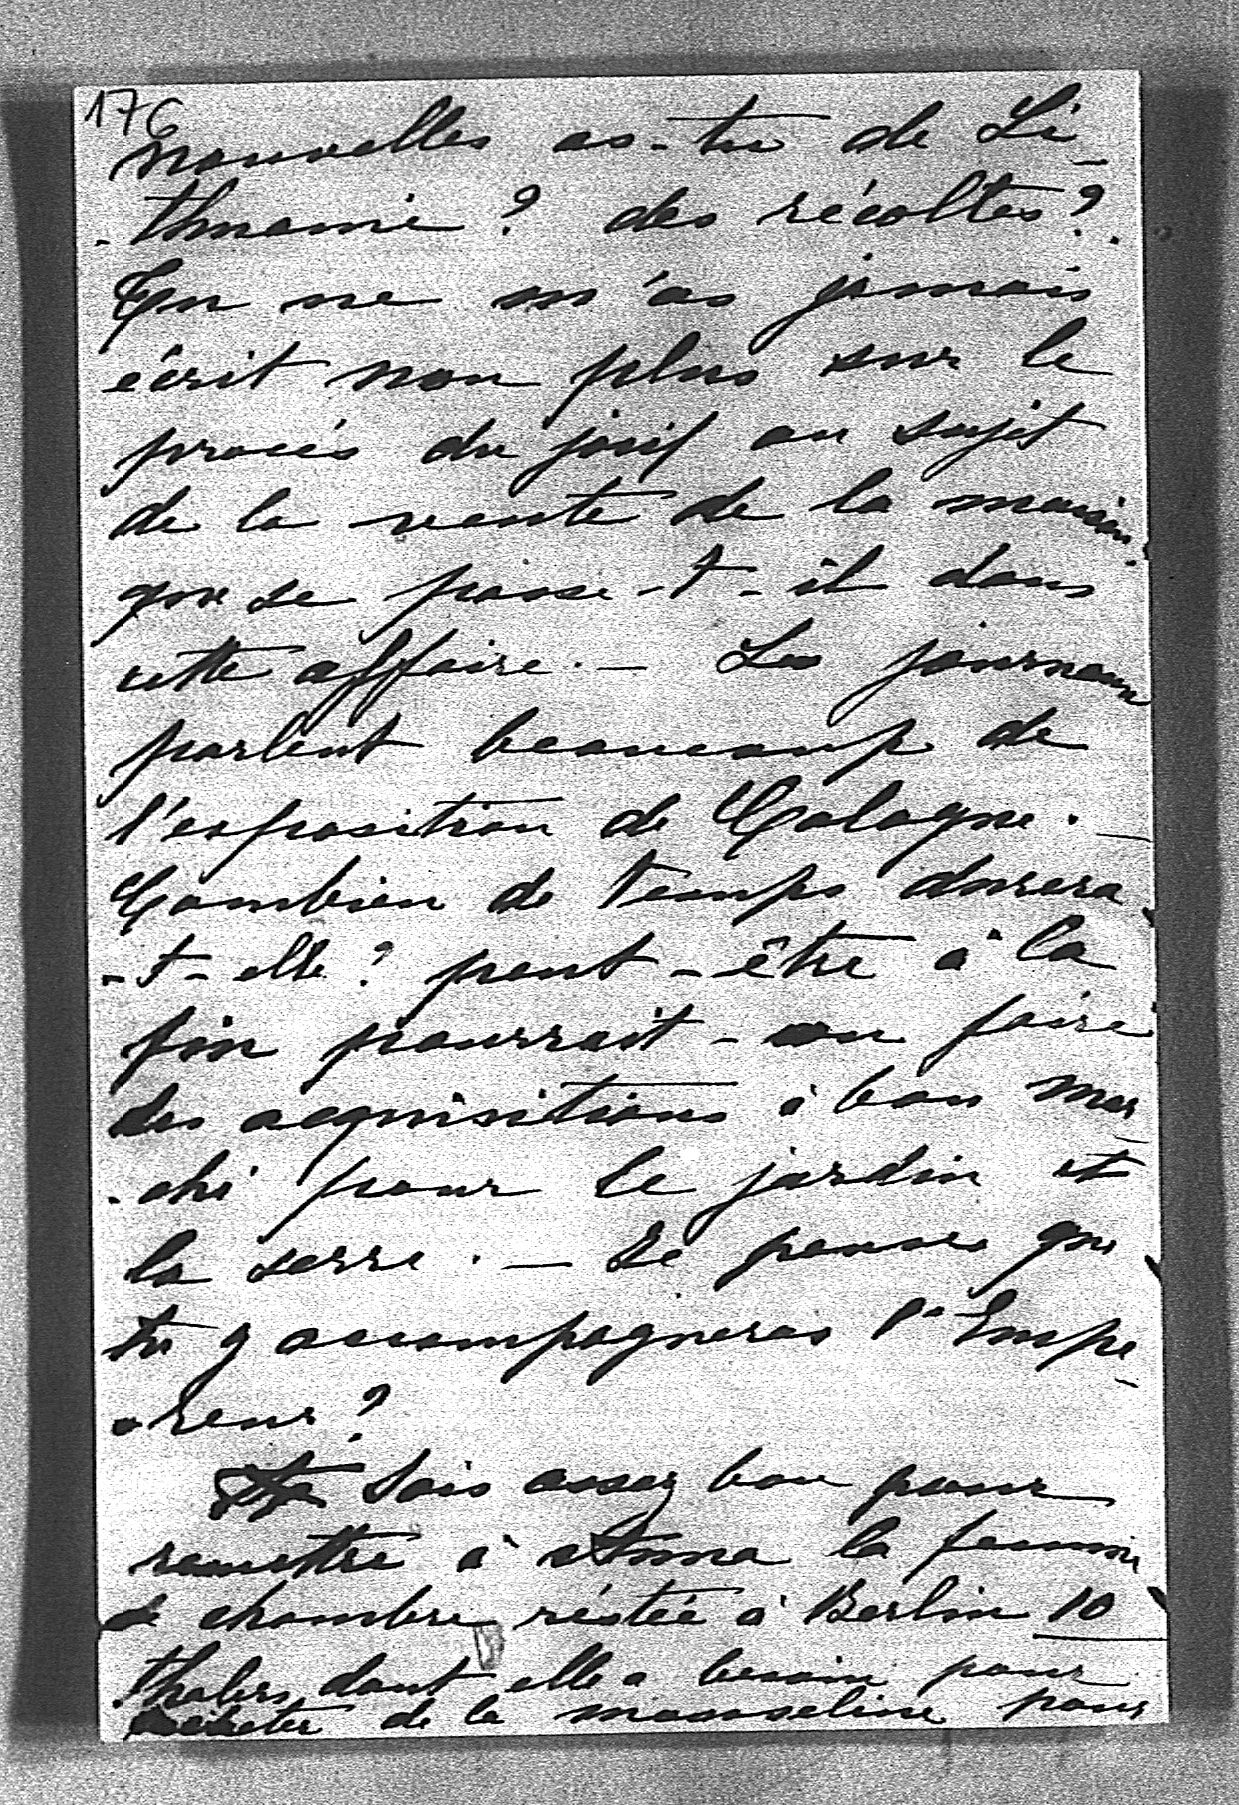 176
nouvelles as-tu de Li-
-thuanie ? des récoltes ?
Tu ne m'as jamais
écrit non plus sur le
procès du juif au sujet
de la vente de la maison.
que se passe-t-il dans
cette affaire. — Les journaux
parlent beaucoup de
l'exposition de Cologne. —
Combien de temps durera
-t-elle ? peut-être à la
fin pourrait-on faire
des acquisitions à bon mar-
-ché pour le jardin et
la serre. — Je pense que
tu y accompagneras l'Empe-
-reur ?
Sois assez bon pour
remettre à Anna la femme
de chambre réstée à Berlin 10
thalers dont elle a besoin pour
acheter de la mousseline pour